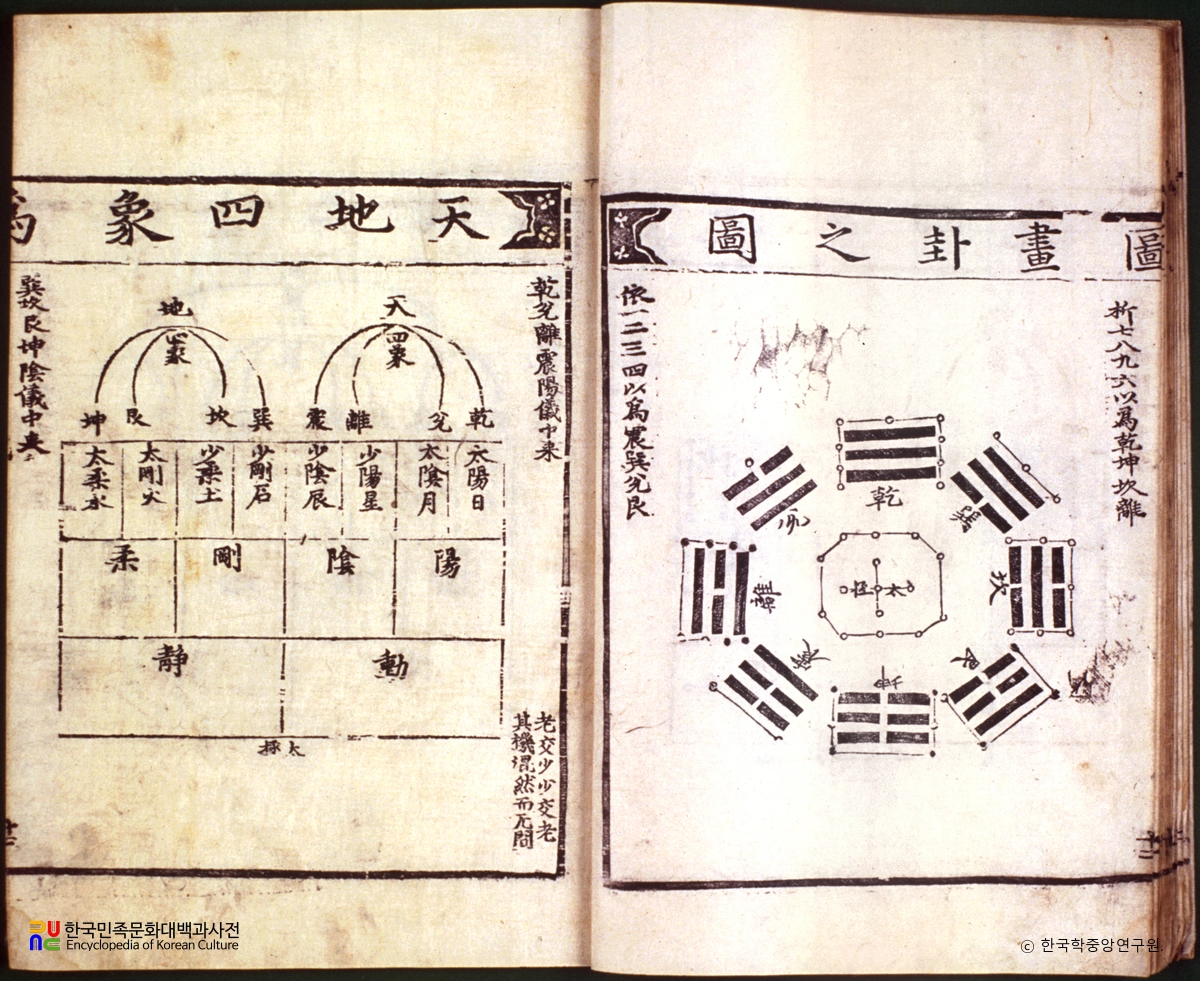 圖畫卦之圖
析七八九六以爲乾坤坎離
乾
兌
巽
離
太極
坎
震
艮
坤
依一二三四以爲震巽兌艮
天地四象爲
乾兌離震陽儀中来
天
四象
地
四象
乾
兌
離
震
巽
坎
艮
坤
太陽日
太陰月
少陽星
少陰辰
少剛石
少柔土
太剛火
太柔水
陽
陰
剛
柔
動
静
太極
老交少少交老
其機混然而无間
巽坎艮坤陰儀中来
한국민족문화대백과사전
Encyclopedia of Korean Culture
© 한국학중앙연구원